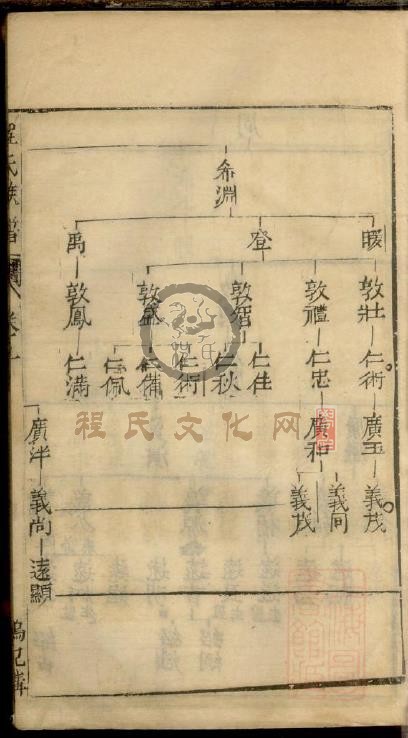 希淵
暖 登 禹
敦壯 敦禮 敦智 敦盛 敦鳳
仁術 仁忠 仁佳 仁秋 仁術 仁備 仁佩 仁滿
廣玉 廣和 廣泮
義茂 義同 義茂 義尚
遠顯
程氏文化网
程氏族譜